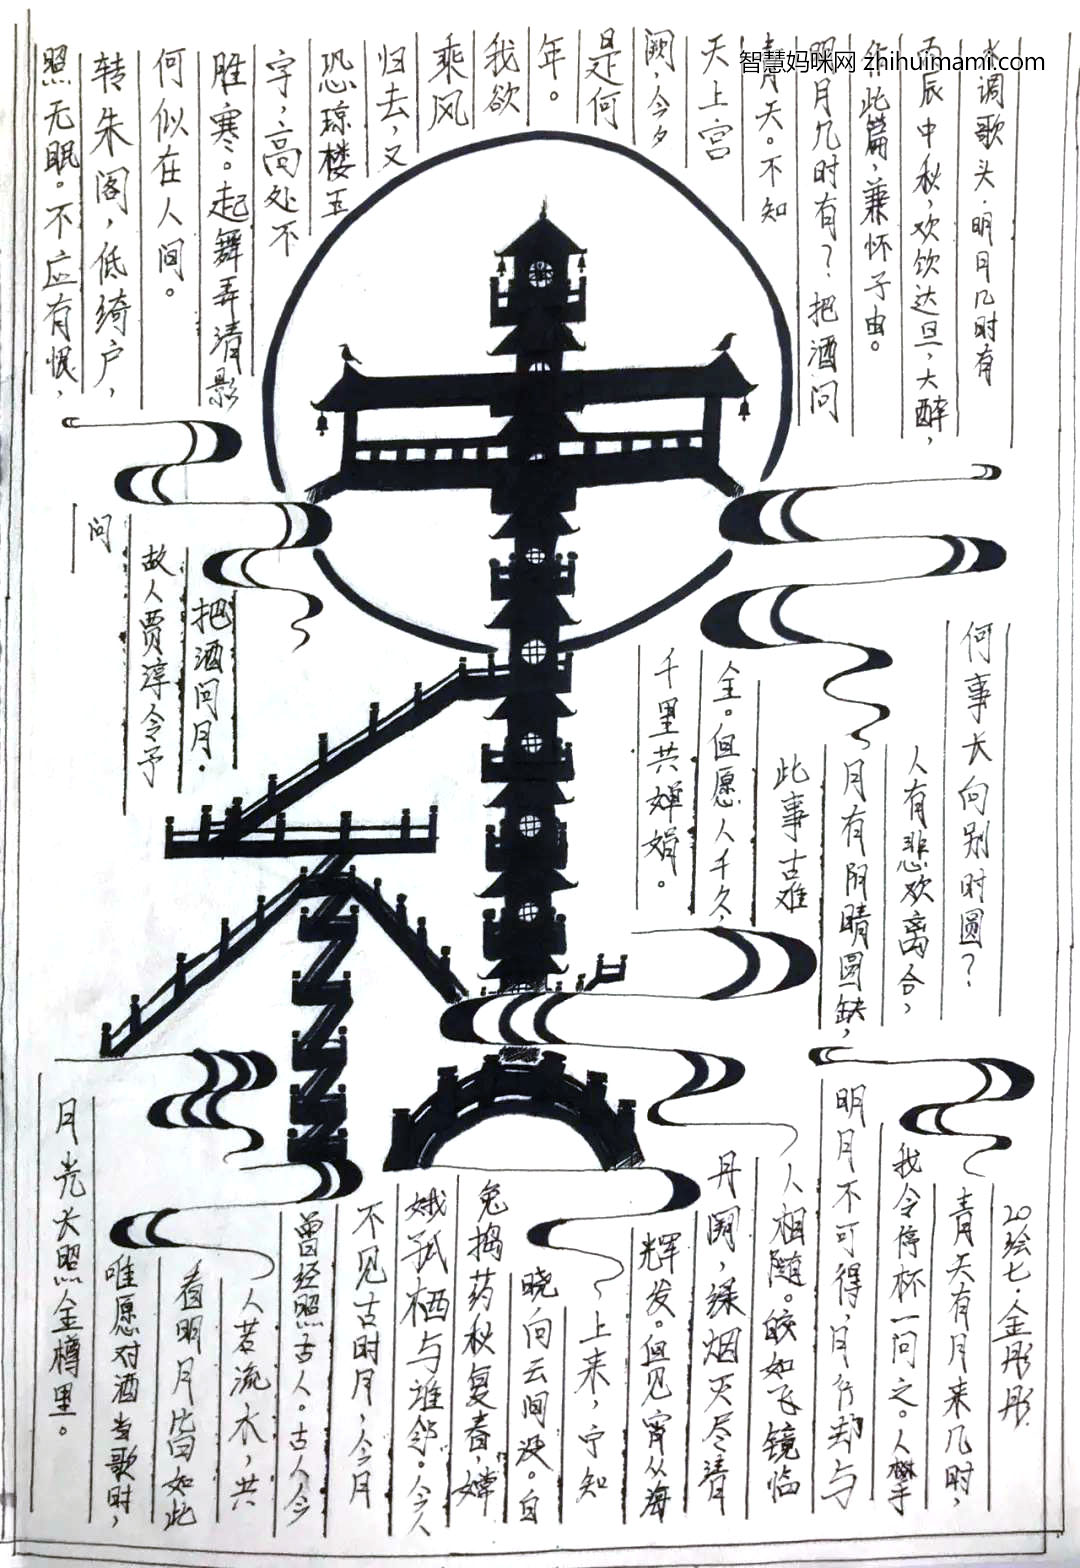 智慧妈咪网 zhihuimami.com
水调歌头·明月几时有
丙辰中秋，欢饮达旦，大醉，
作此篇，兼怀子由。
明月几时有？把酒问
青天。不知
天上宫
阙，今夕
是何
年。
我欲
乘风
归去，又
恐琼楼玉
宇，高处不
胜寒。起舞弄清影
何似在人间。
转朱阁，低绮户，
照无眠。不应有恨，
何事长向别时圆？
人有悲欢离合，
月有阴晴圆缺，
此事古难
全。但愿人千久，
千里共婵娟。
把酒问月·
故人贾淳令予
问
20绘七·金彤彤
青天有月来几时，
我今停杯一问之。人攀
明月不可得，月行却与
人相随。皎如飞镜临
丹阙，绿烟灭尽清
辉发。但见宵从海
上来，宁知
晓向云间没。白
兔捣药秋复春，嫦
娥孤栖与谁邻。今人
不见古时月，今月
曾经照古人。古人今
人若流水，共
看明月皆如此
唯愿对酒当歌时，
月光长照金樽里。